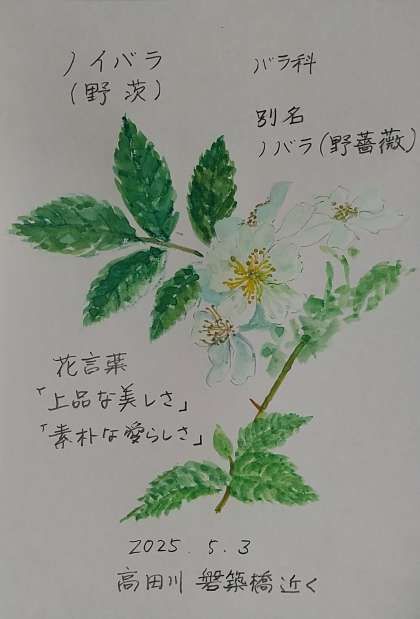 ノイバラ
(野茨)
バラ科
別名
ノバラ(野薔薇)
花言葉
「上品な美しさ」
「素朴な愛らしさ」
2025.5.3
高田川 磐築橋近く